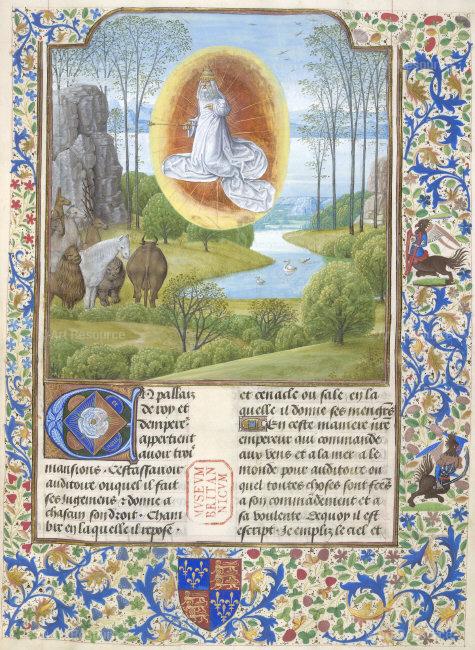 EN pallaiz
de roy et
dempere
appertient
auoir troi
mansions. Cestassauoir
auditoire ouquel il fait
ses jugemens ⁊ donne a
chascun son droit. Cham
bre en laquelle il repose.
et cenacle ou sale en la
quelle il donne ses mengrs
En ceste maniere nre
empereur qui commande
aux vens et a la mer a le
monde pour auditoire ou
quel toutes choses sont fces
a son commandement et a
sa voulente. Dequoy il est
escript. Je emplis le ciel et
MVSEVM
BRITAN
NICVM
Art Resource